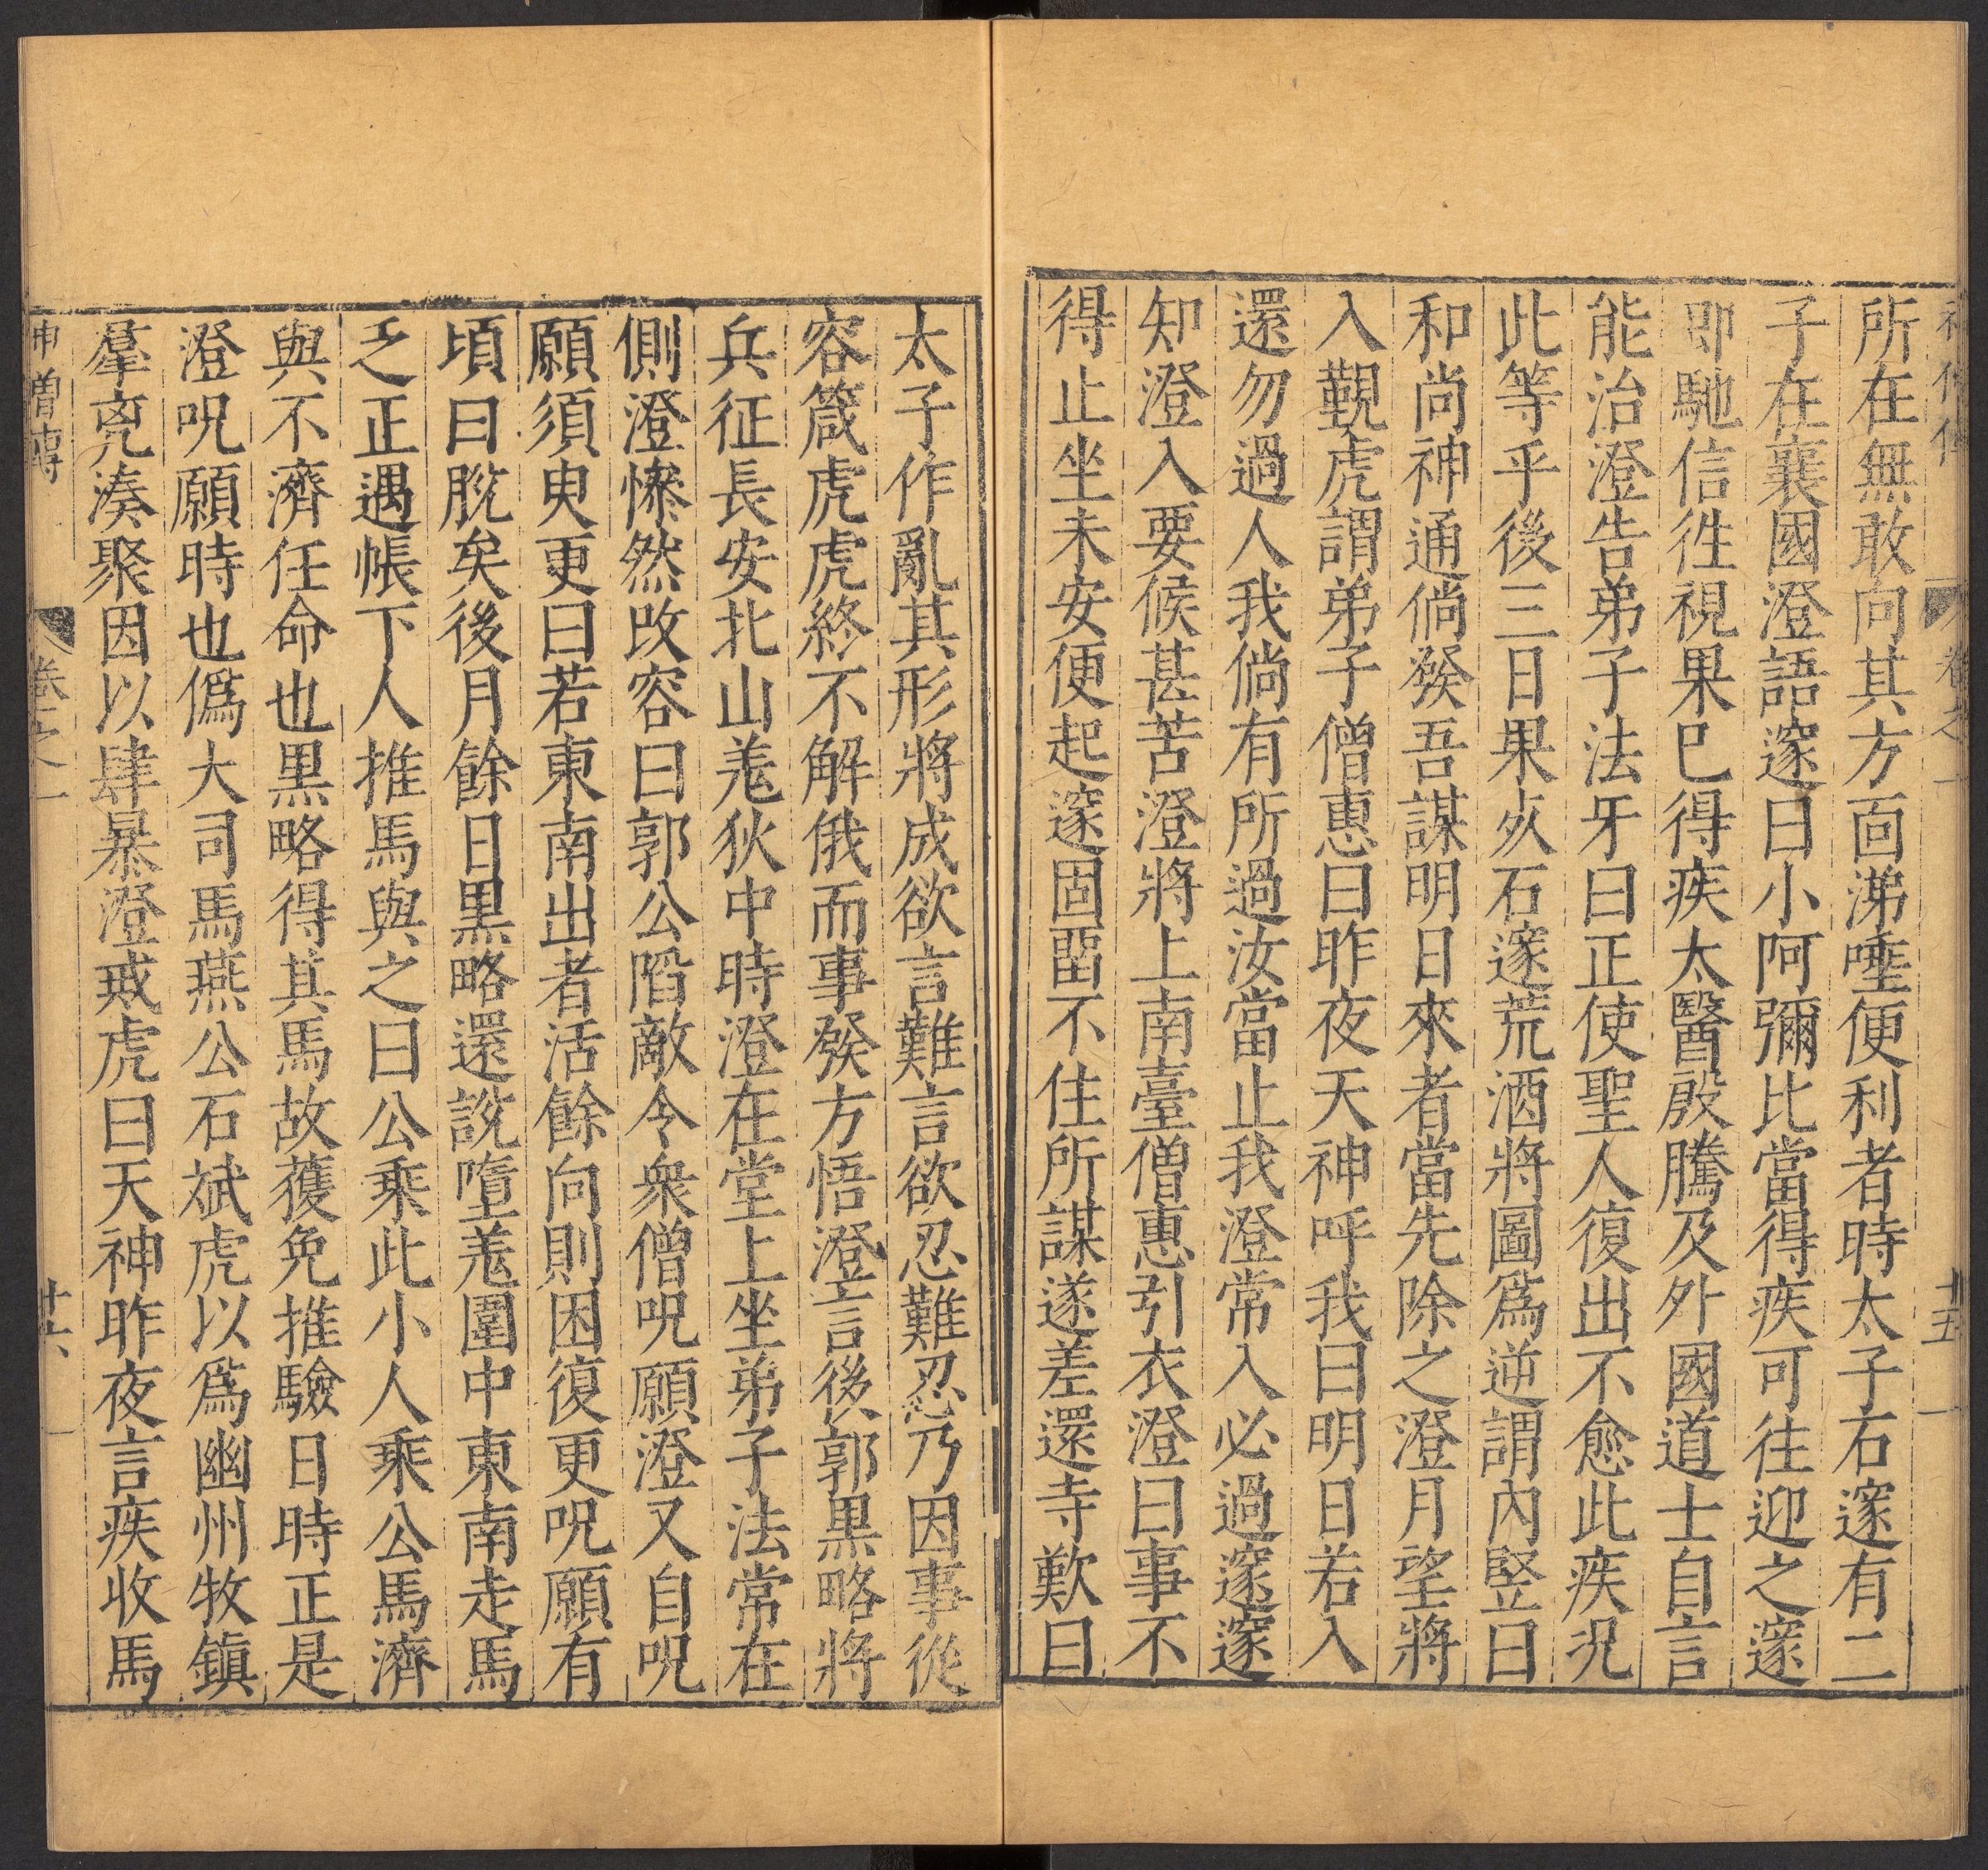 所在無敢向其方面涕唾便利者時太子右邃有二
子在襄國澄語邃曰小阿彌比當得疾可往迎之邃
即馳信徃視果巳得疾太醫殷騰及外國道士自言
能治澄告弟子法牙曰正使聖人復出不愈此疾况
此等乎後三日果歿石邃荒酒將圖爲逆謂內竪曰
和尚神通倘發吾謀明日來者當先除之澄月望將
入覲虎謂弟子僧惠曰昨夜天神呼我曰明日若入
還勿過人我倘有所過汝當止我澄常入必過邃邃
知澄入要候甚苦澄將上南臺僧惠引衣澄曰事不
得止坐未安便起邃固畱不住所謀遂差還寺歎曰
太子作亂其形將成欲言難言欲忍難忍乃因事從
容箴虎虎終不解俄而事發方悟澄言後郭黒略將
兵征長安北山羗狄中時澄在堂上坐弟子法常在
側澄慘然改容曰郭公陷敵令衆僧呪願澄又自呪
願須臾更曰若東南出者活餘向則困復更呪願有
頃曰脫矣後月餘日黒略還說墮羗圍中東南走馬
乏正遇帳下人推馬與之曰公乘此小人乘公馬濟
與不濟任命也黒略得其馬故獲免推驗日時正是
澄呪願時也僞大司馬燕公石斌虎以爲幽州牧鎮
羣亮湊聚因以肆暴澄戒虎曰天神昨夜言疾收馬
神僧傳 卷之一 十六